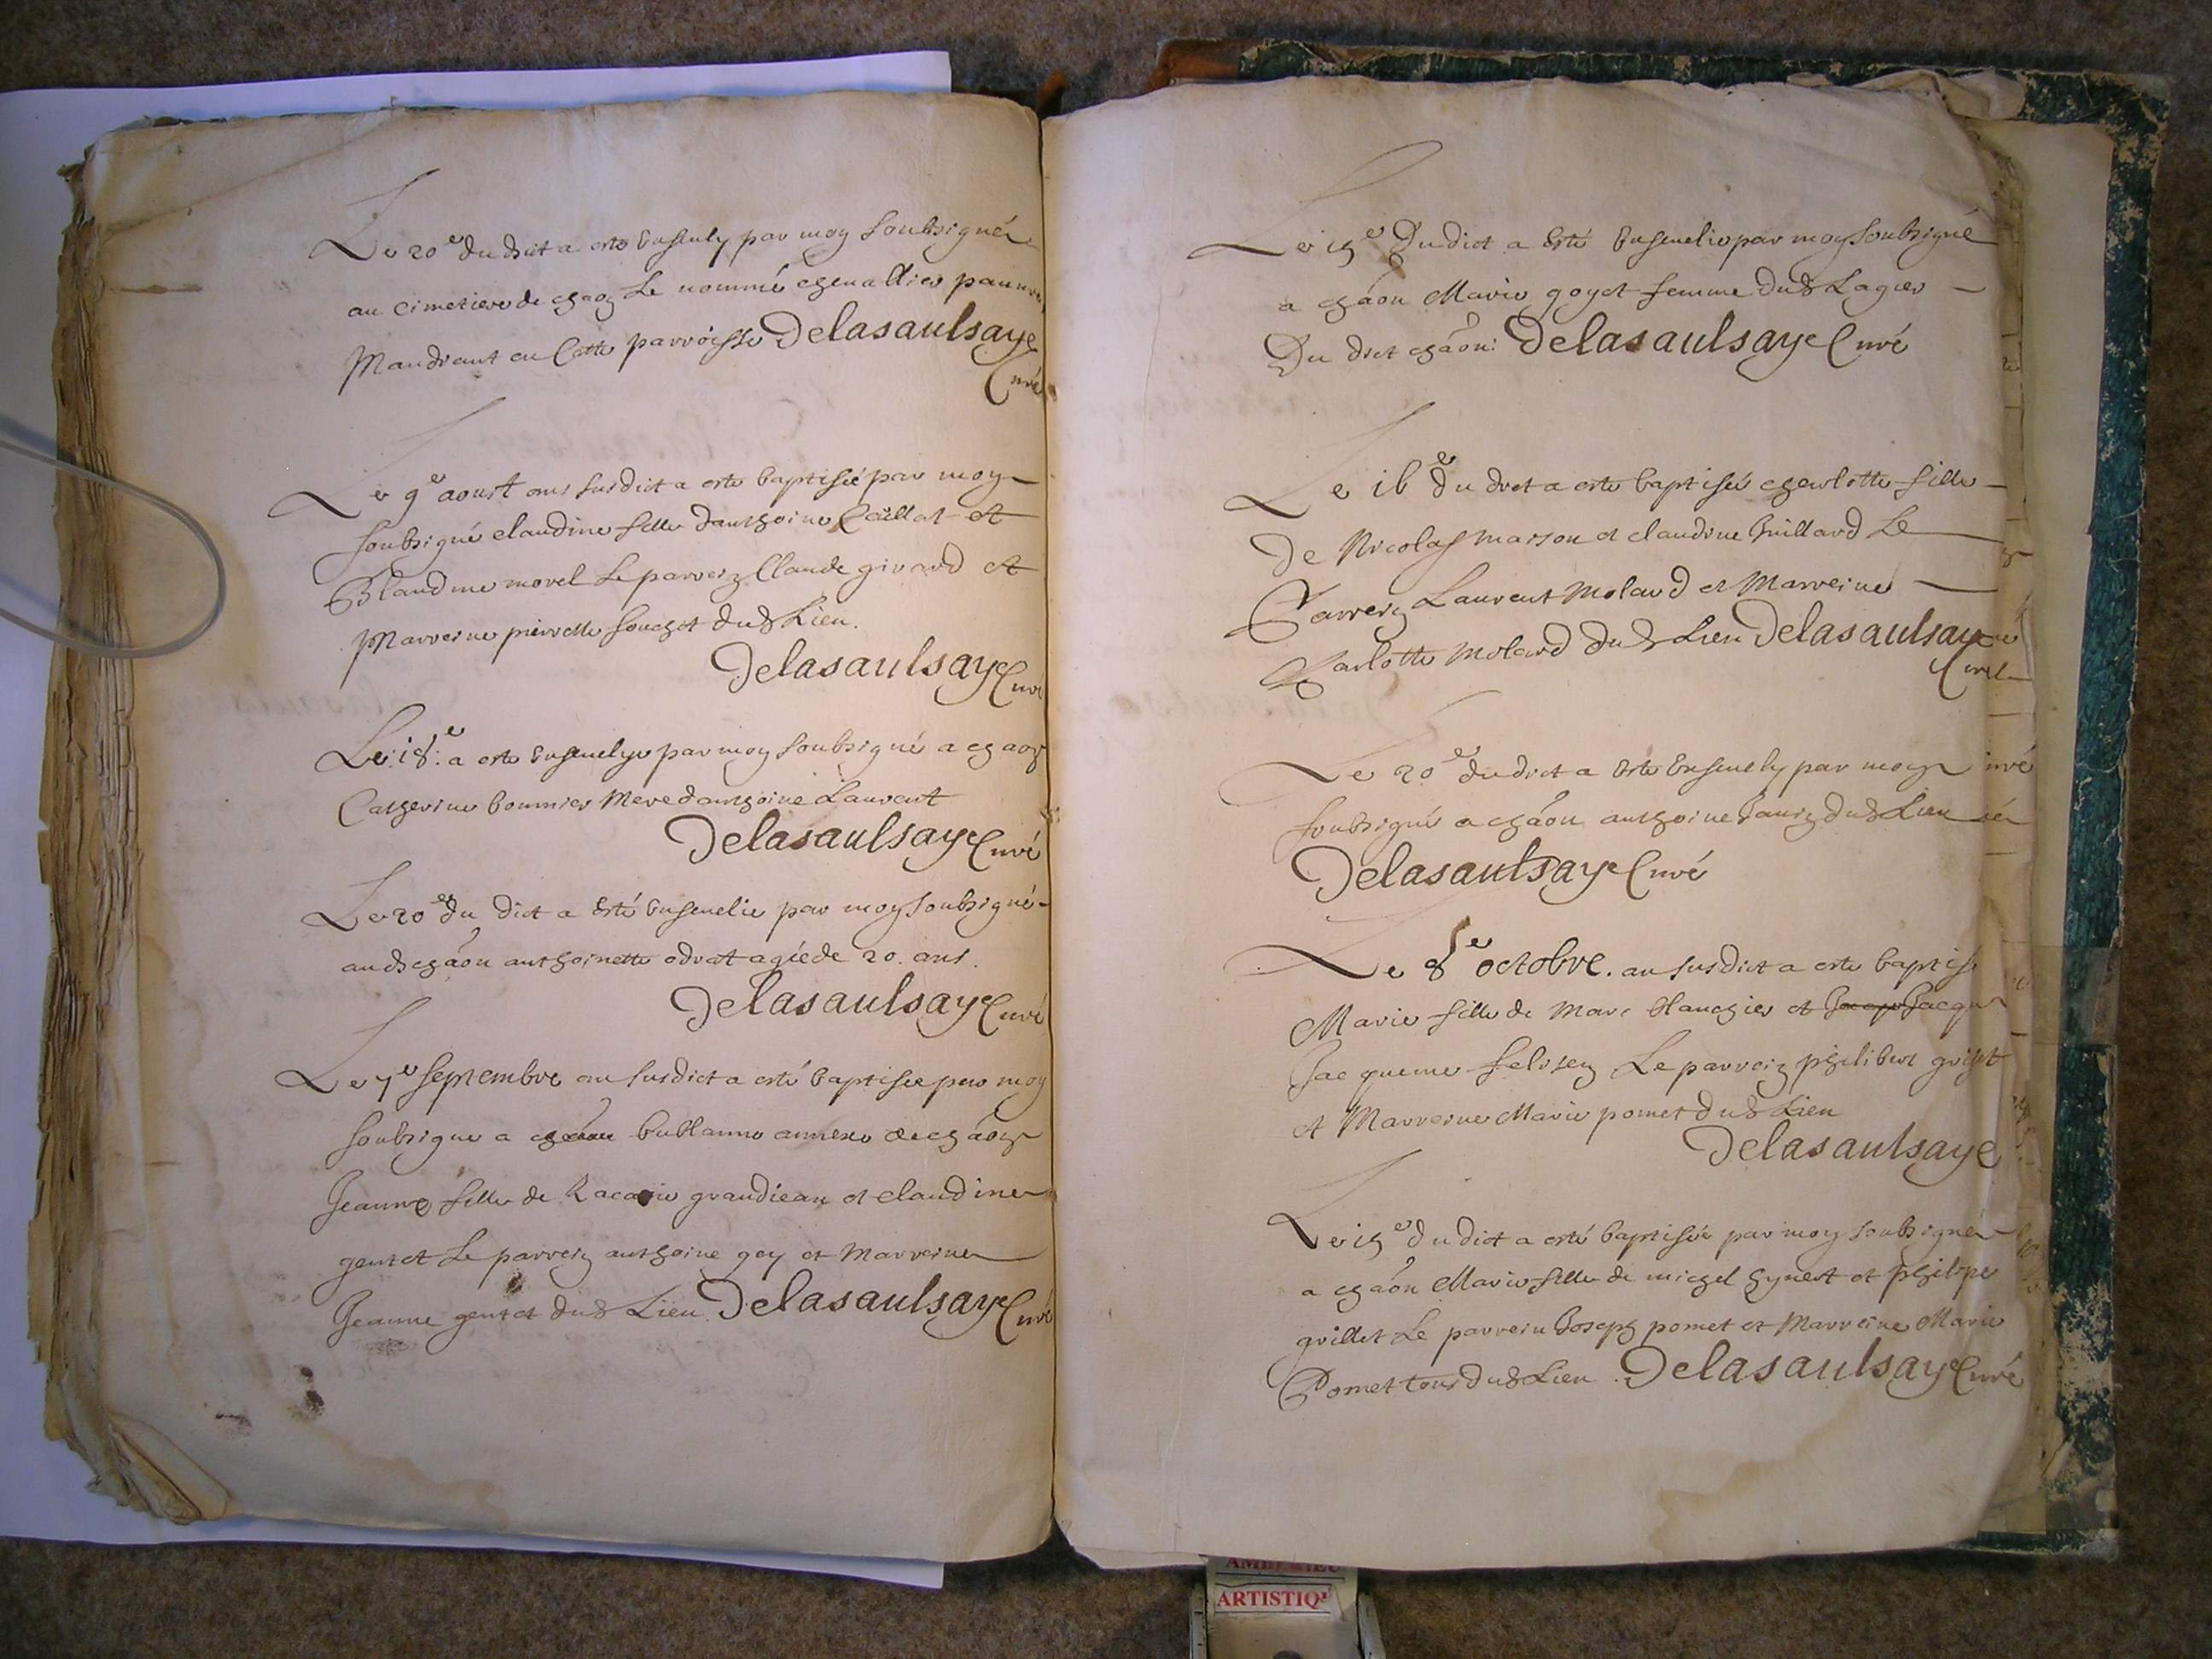 Le 20e du dict a esté Enseuely par moy soubsigné
au cimetiere de chaon Le nommé cheuallier pauure
Mandiant en Cette parroisse Delasaulsaye
Curé
Le 9e aoust ans susdict a esté baptisée par moy
soubsigné claudine fille danthoine Caillat et
Blandine morel Le parrein Claude girard et
Marreine pierrette fouchet dud Lieu.
Delasaulsaye Curé
Le 18e a esté Enseuelye par moy soubsigné a chaon
Catherine bonnier Mere danthoine Laurent
Delasaulsaye Curé
Le 20e du dict a Esté Enseuelie par moy soubsigné
aud chaon anthoinette odrat agiéde 20. ans.
Delasaulsaye Curé
Le 7e septembre an susdict a esté baptisée par moy
soubsigne a annexe de chaon
Jeanne fille de grandiean et claudine
gentet Le parrein anthoine gey et Marreine
Jeanne gentet dud Lieu. Delasaulsaye Curé
Le 15e Dudict a Esté Enseuelie par moy soubsigné
a chaon Marie goyet femme dud Lagier
Du dict chaon: Delasaulsaye Curé
Le 16e du dict a esté baptisée cherlotte fille
De Nicolas masson et claudine Guillard Le
Parrein Laurent Molard et Marreine
Charlotte Molard dud Lieu Delasaulsaye
Curé
Le 20e du dict a Esté Enseuely par moy
soubsigné a chaon anthoine dud Lieu
Delasaulsaye Curé
Le 8e octobre. an susdict a esté baptisé
Marie fille de Marc blanchier et
Jacqueme felisen Le parrein philibert
et Marreine Marie pomet dud Lieu
Delasaulsaye
Le 15e du dict a esté baptisée par moy soubsigné
a chaon Marie fille de michel gynest et philipe
grillet Le parrein Joseph pomet et Marreine Marie
Pomet tous dud Lieu. Delasaulsaye Curé
ARTISTIQ